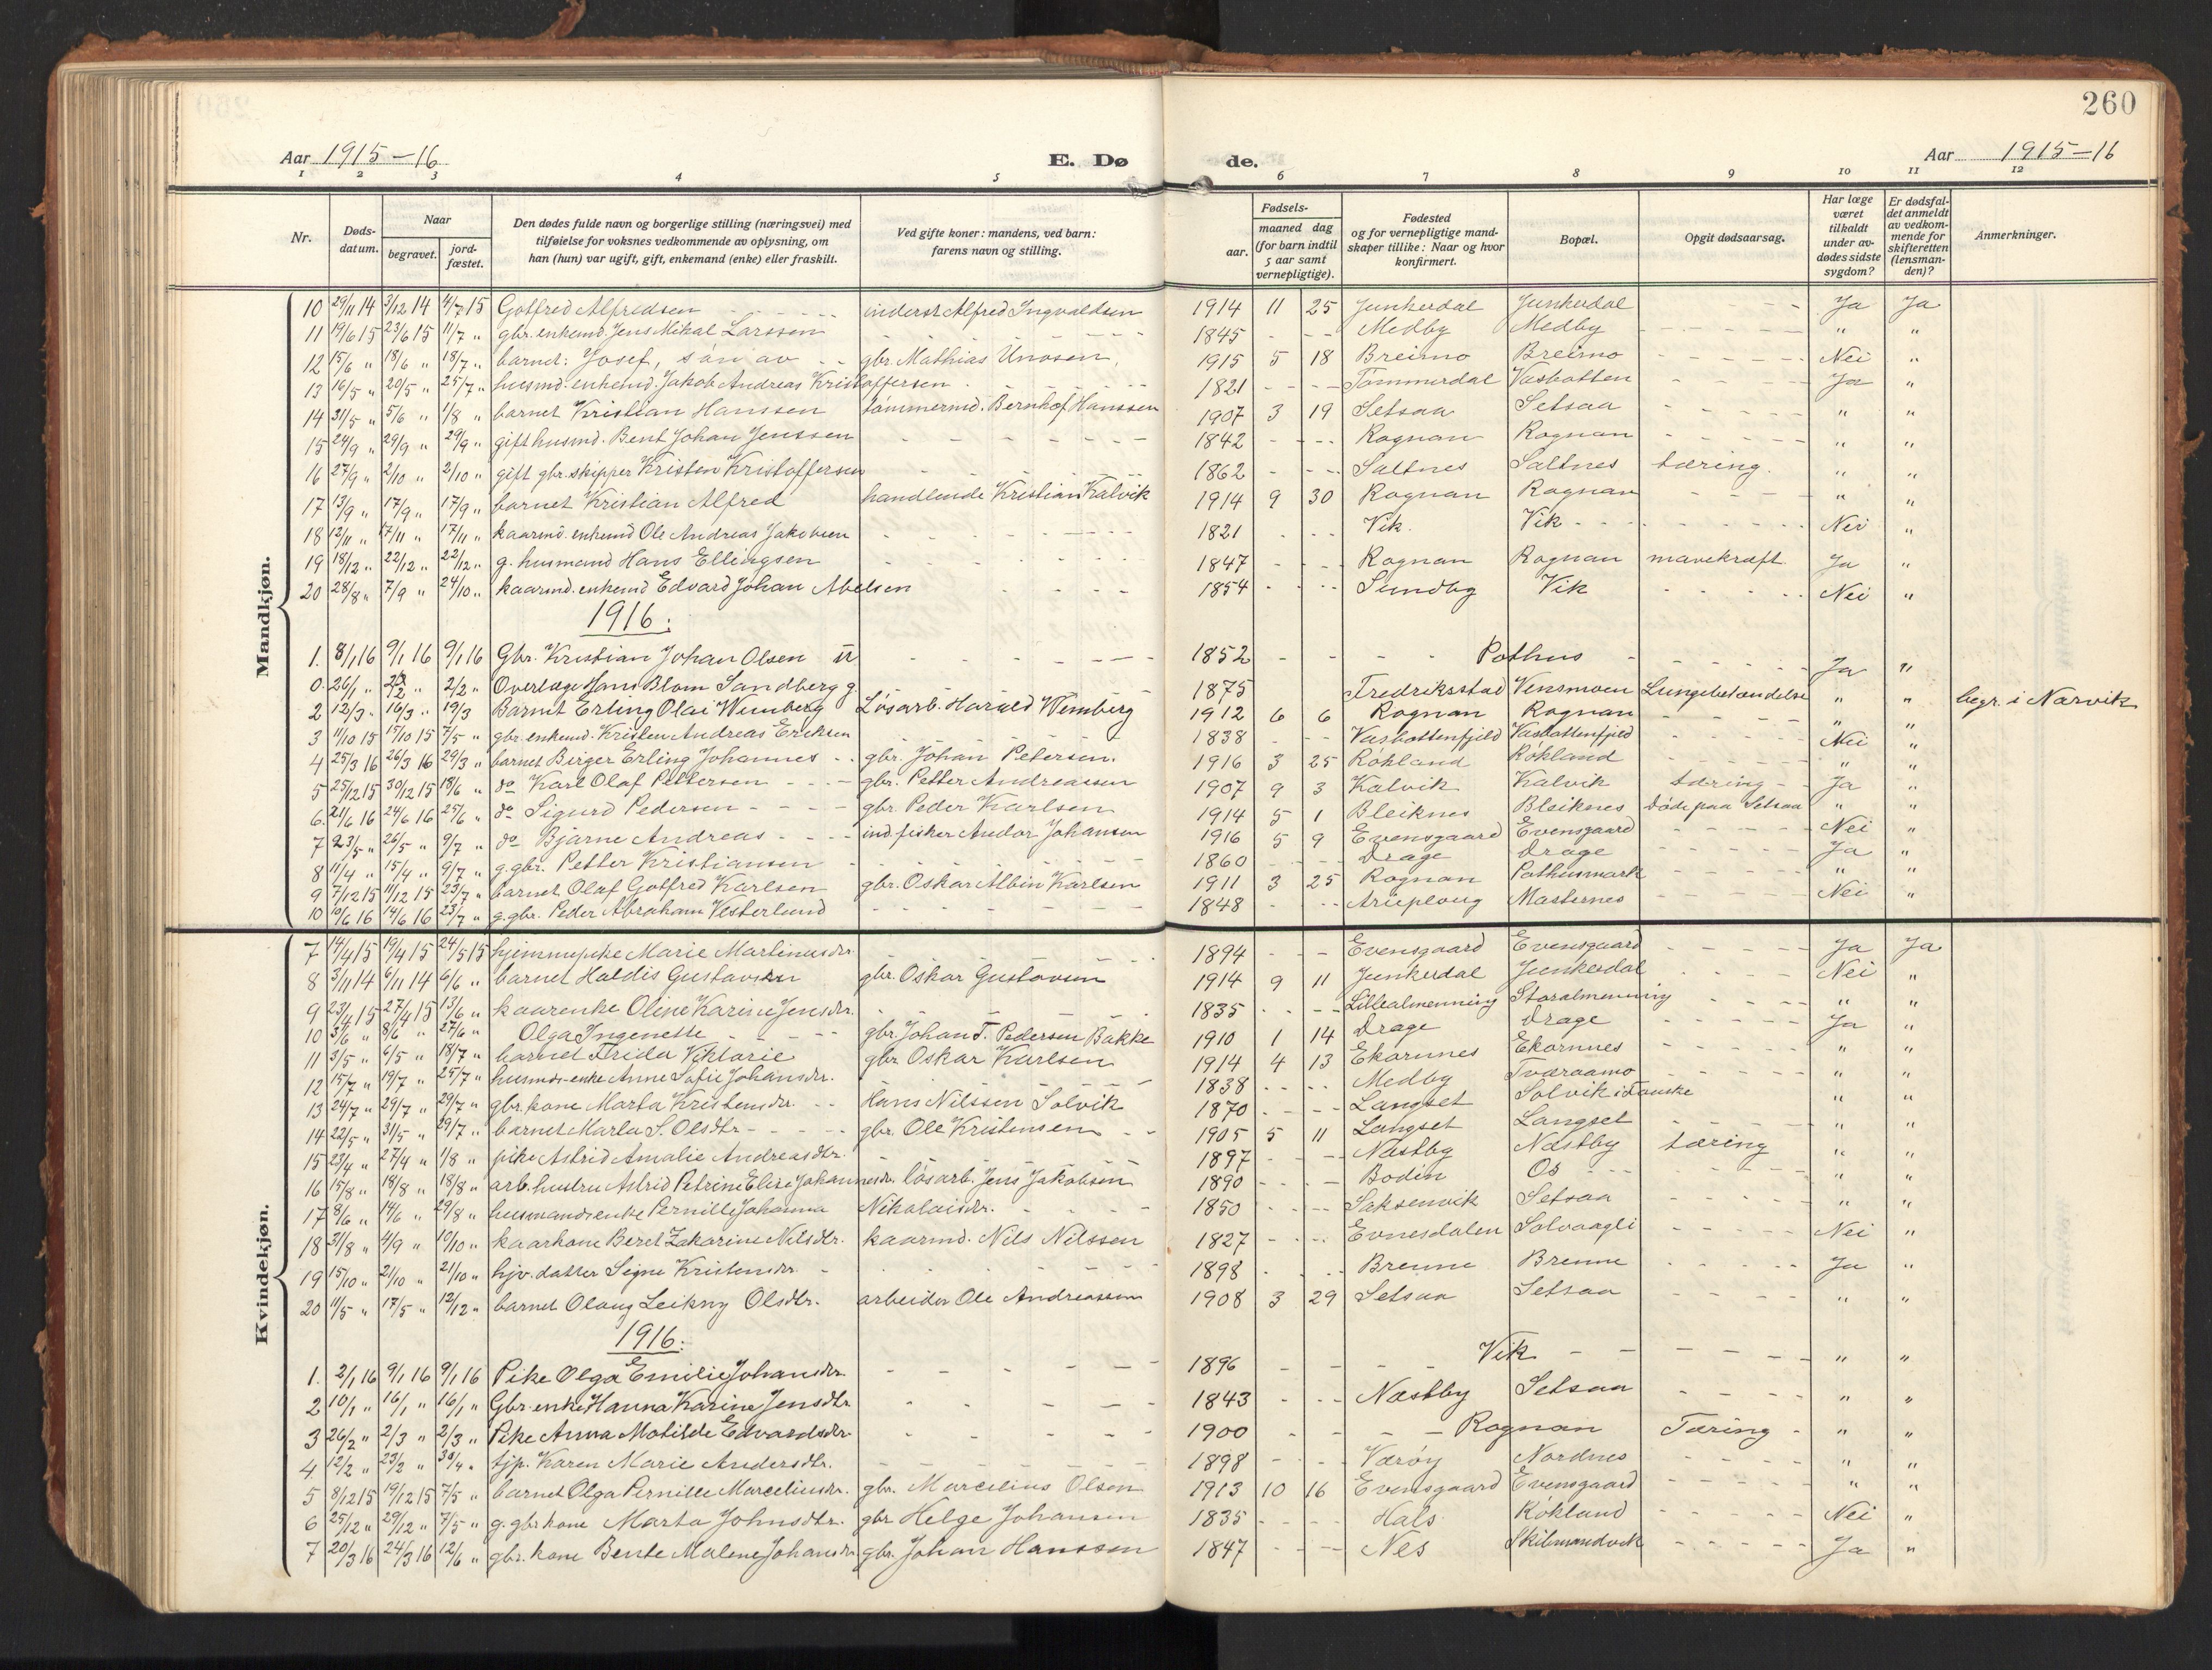 260
Aar 1915–16 E. Dø de. Aar 1915–16
1 2 3 4 5 6 7 8 9 10 11 12
Nr. Døds-datum. Naar begravet. jord-fæstet. Den dødes fulde navn og borgerlige stilling (næringsvei) med tilføielse for voksnes vedkommende av oplysning, om han (hun) var ugift, gift, enkemand (enke) eller fraskilt. Ved gifte koner: mandens, ved barn: farens navn og stilling. Fødsels- aar. maaned dag (for barn indtil 5 aar samt vernepligtige). Fødested og for vernepligtige mand-skaper tillike: Naar og hvor konfirmert. Bopæl. Opgit dødsaarsag. Har læge været tilkaldt under av-dødes sidste sygdom? Er dødsfal-det anmeldt av vedkom-mende for skifteretten (lensman-den)? Anmerkninger.
Mandkjøn.
10 29/11 14 3/12 14 4/7 15 Gotfred Alfredsen - - inderst Alfred Ingvaldsen 1914 11 25 Junkerdal Junkerdal - - Ja Ja
11 19/6 15 23/6 15 11/7 " gbr. enkemd. Jens Mikal Larssen - - 1845 - - Medby Medby - - " "
12 15/6 " 18/6 " 18/7 " barnet: Josef, søn av - - gbr. Mathias Unosen 1915 5 18 Breimo Breimo - - Nei "
13 16/5 " 20/5 " 25/7 " husmd. enkemd. Jakob Andreas Kristoffersen - - 1821 - - Tømmerdal Vasbotten - - Ja "
14 31/5 " 5/6 " 1/8 " barnet Kristian Hanssen tømmermd. Bernhof Hanssen 1907 3 19 Setsaa Setsaa " "
15 24/9 " 29/9 " 29/9 " gift husmd. Bent Johan Jenssen - - 1842 - - Rognan Rognan - - " "
16 27/9 " 2/10 " 2/10 " gift gbr. skipper Kristen Kristoffersen - - 1862 - - Saltnes Saltnes tæring. " "
17 13/9 " 17/9 " 17/9 " barnet Kristian Alfred handlende Kristian Kalvik 1914 9 30 Rognan Rognan - - " "
18 12/11 " 17/11 " 17/11 " kaarmd. enkemd Ole Andreas Jakobsen 1821 - - Vik. Vik - - Nei "
19 18/12 " 22/12 " 22/12 " g. husmand Hans Ellingsen - - 1847 - - Rognan Rognan mavekræft. Ja "
20 28/8 " 7/9 " 24/10 " kaarmd. enkemd Edvard Johan Abelsen - - 1854 - - Sundby Vik - - Nei "
1916:
1. 8/1 16 9/1 16 9/1 16 Gbr. Kristian Johan Olsen - - 1852 - - Pothus - - Ja "
0. 26/1 " 2/2 " 2/2 " Overlæge Hans Blom Sandberg g. 1875 Fredriksstad Vensmoen Lungebetændelse " " begr. i Narvik
2 12/3 " 16/3 " 19/3 Barnet Erling Olai Wemberg Løsarb. Harald Wemberg 1912 6 6 Rognan Rognan - - " "
3 11/10 15 15/10 15 7/5 " gbr. enkemd. Kristen Andreas Eriksen 1838 - - Vasbottenfjeld Vasbottenfjeld - - Nei "
4 25/3 16 26/3 16 29/3 " barnet Birger Erling Johannes - - gbr. Johan Petersen. 1916 3 25 Røkland Røkland - - " "
5 25/12 15 30/12 15 18/6 " do Karl Olaf Pettersen - - gbr. Petter Andreassen 1907 9 3 Kalvik Kalvik tæring - Ja "
6. 21/6 16 24/6 16 25/6 " do Sigurd Pedersen - - gbr Peder Karlsen 1914 5 1 Bleiknes Bleiknes døde paa Setsaa " "
7 23/5 " 26/5 " 9/7 " do Bjarne Andreas - - ind. fisker Andor Johansen 1916 5 9 Evensgaard Evensgaard - - Nei "
8 11/4 " 15/4 " 9/7 " g. gbr. Petter Kristiansen - - 1860 - - Drage Drage - - Ja "
9 7/12 15 11/12 15 23/7 " barnet Olaf Gotfred Karlsen gbr. Oskar Albin Karlsen 1911 3 25 Rognan Pothusmark - - " "
10 10/6 16 14/6 16 23/7 " g. gbr. Peder Abraham Vesterlund - - 1848 - - Arieploug Masternes - - Nei "
Kvindekjøn.
7 14/4 15 19/4 15 24/5 15 hjemmepike Marie Martinusdtr. - - 1894 - - Evensgaard Evensgaard - - Ja Ja
8 3/11 14 6/11 14 6/6 " barnet Haldis Gustavsen gbr. Oskar Gustavsen 1914 9 11 Junkerdal Junkerdal - - Nei "
9 23/4 15 27/4 15 13/6 " kaarenke Oline Karine Jensdtr. - - 1835 - - Lillealmenning Storalmenning - - " "
10 3/6 " 8/6 " 27/6 " Olga Ingenette - - gbr. Johan T. Pedersen Bakke 1910 1 14 Drage Drage - - Ja "
11 3/5 " 6/5 " 18/7 " barnet Frida Viktorie gbr. Oskar Karlsen 1914 4 13 Ekornnes Ekornnes - - " "
12 15/7 " 19/7 " 25/7 " husmds-enke Anne Sofie Johansdtr. 1838 - - Medby Tværaamo - - " "
13 24/7 " 29/7 " 29/7 " gbr. kone Marta Kristensdtr. - - Hans Nilssen Solvik 1870 - - Langset Solvik i Fauske " "
14 22/5 " 31/5 " 29/7 " barnet Marta S. Olsdtr - - gbr. Ole Kristensen 1905 5 11 Langset Langset - - " "
15 23/4 " 27/4 " 1/8 " pike Astrid Amalie Andreasdtr. - - 1897 - - Næstby Næstby tæring " "
16 15/8 " 18/8 " 18/8 " arb. hustru Astrid Petrine Elise Johannesdr. løsarb. Jens Jakobsen 1890 - - Bodin Os - - " "
17 8/6 " 14/6 " 29/8 " husmandsenke Pernille Johanna Nikolaisdtr. - - 1850 - - Saksenvik Setsaa - - " "
18 31/8 " 4/9 " 10/10 " kaarkone Beret Zakarine Nilsdtr. kaarmd. Nils Nilssen 1827 - - Evnesdalen Solvaagli - - Nei "
19 15/10 " 21/10 " 21/10 " hjv. datter Signe Kristensdtr. - - 1898 - - Brenne Brenne - - Ja "
20 11/5 " 17/5 " 12/12 " barnet Olaug Leikny Olsdtr. arbeider Ole Andreassen 1908 3 29 Setsaa Setsaa - - " "
1916:
1. 2/1 16 9/1 16 9/1 16 Pike Olga Emilie Johansdtr. - - 1896 - - Vik - - " "
2 10/1 " 16/1 " 16/1 " Gbr. enke Hanna Karine Jensdtr - - 1843 - - Næstby Setsaa - - " "
3 26/2 " 2/3 " 2/3 " Pike Anna Motilde Edvardsdtr - - 1900 - - Rognan Tæring - " "
4. 12/2 " 23/2 " 30/4 " tjp. Karen Marie Andersdtr. - - 1898 - - Værøy Nordnes - - " "
5 8/12 15 19/12 15 7/5 " barnet Olga Pernille Marceliusdtr. gbr. Marcelius Olsen 1913 10 16 Evensgaard Evensgaard " "
6 25/12 " 29/12 " 7/5 " g. gbr kone Marta Johnsdtr. gbr Helge Johansen 1835 - - Hals Røkland - - Nei "
7 20/3 16 24/3 16 12/6 " gbr. kone Bente Malene Johansdtr. gbr. Johan Hanssen 1847 - - Nes Skibmandvik - - Ja "